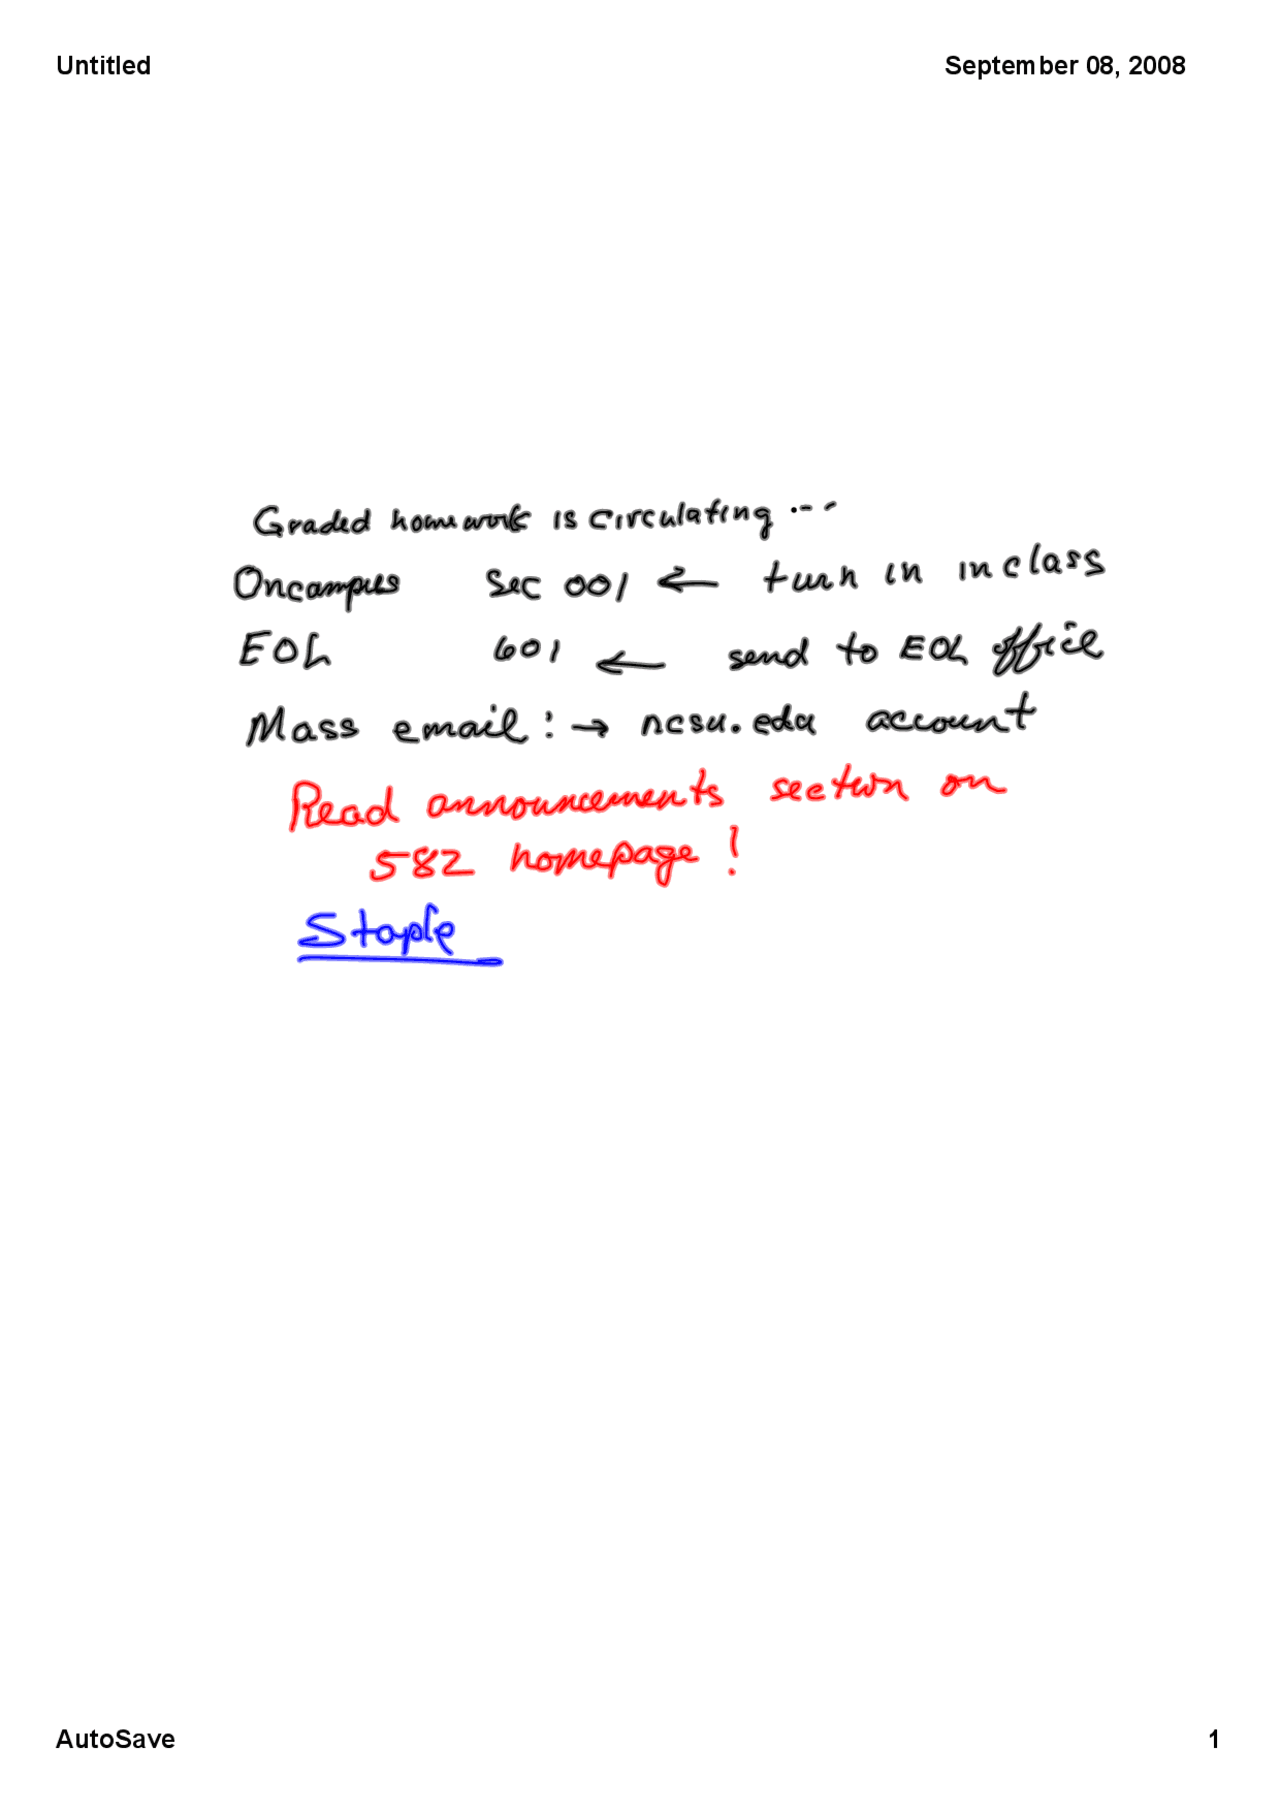 Untitled September 08, 2008
Graded homework is circulating ...
Oncampus Sec 001 ← turn in in class
EOL 601 ← send to EOL office
Mass email: → ncsu.edu account
Read announcements section on
582 homepage!
Staple
AutoSave 1